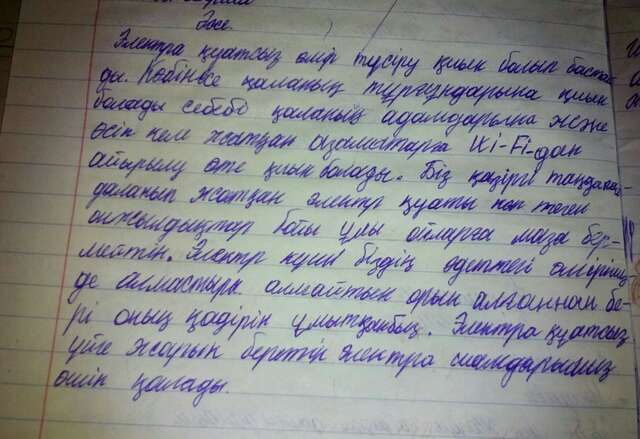 Эссе.
Электра қуатсыз өмір түсіру қиын болып баста
ды. Көбінесе қаланың тұрғундарына қиын
болады себебі қаланың адамдарына және
өсіп келе жатқан азаматтарға Wi-Fi-дан
айырылу өте қиын болады. Біз қазіргі таңда
даланып жатқан электр қуаты көп теген
онжылдықтар бойы ұлы ойларға маза бер-
мейтін. Электр күші біздің әдеттегі өміріміз
де алмастыра алмайтын орын алғаннан бе-
рі оның қадірін ұмытқанбыз. Электра қуатсыз
үйге жарық беретін электра шамдарымыз
өшіп қалады.